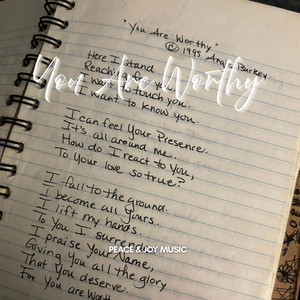 "You Are Worthy"
© 1995 Angi Burkey
Here I stand
Reaching for you.
I want to touch you.
I want to know you.
You Are Worthy
I can feel Your Presence.
It's all around me.
How do I react to You,
To Your love so true?
I fall to the ground.
I become all Yours.
I lift my hands.
To You I surrender
PEACE & JOY MUSIC
I praise Your Name,
Giving You all the glory
That You deserve.
For You are Worthy